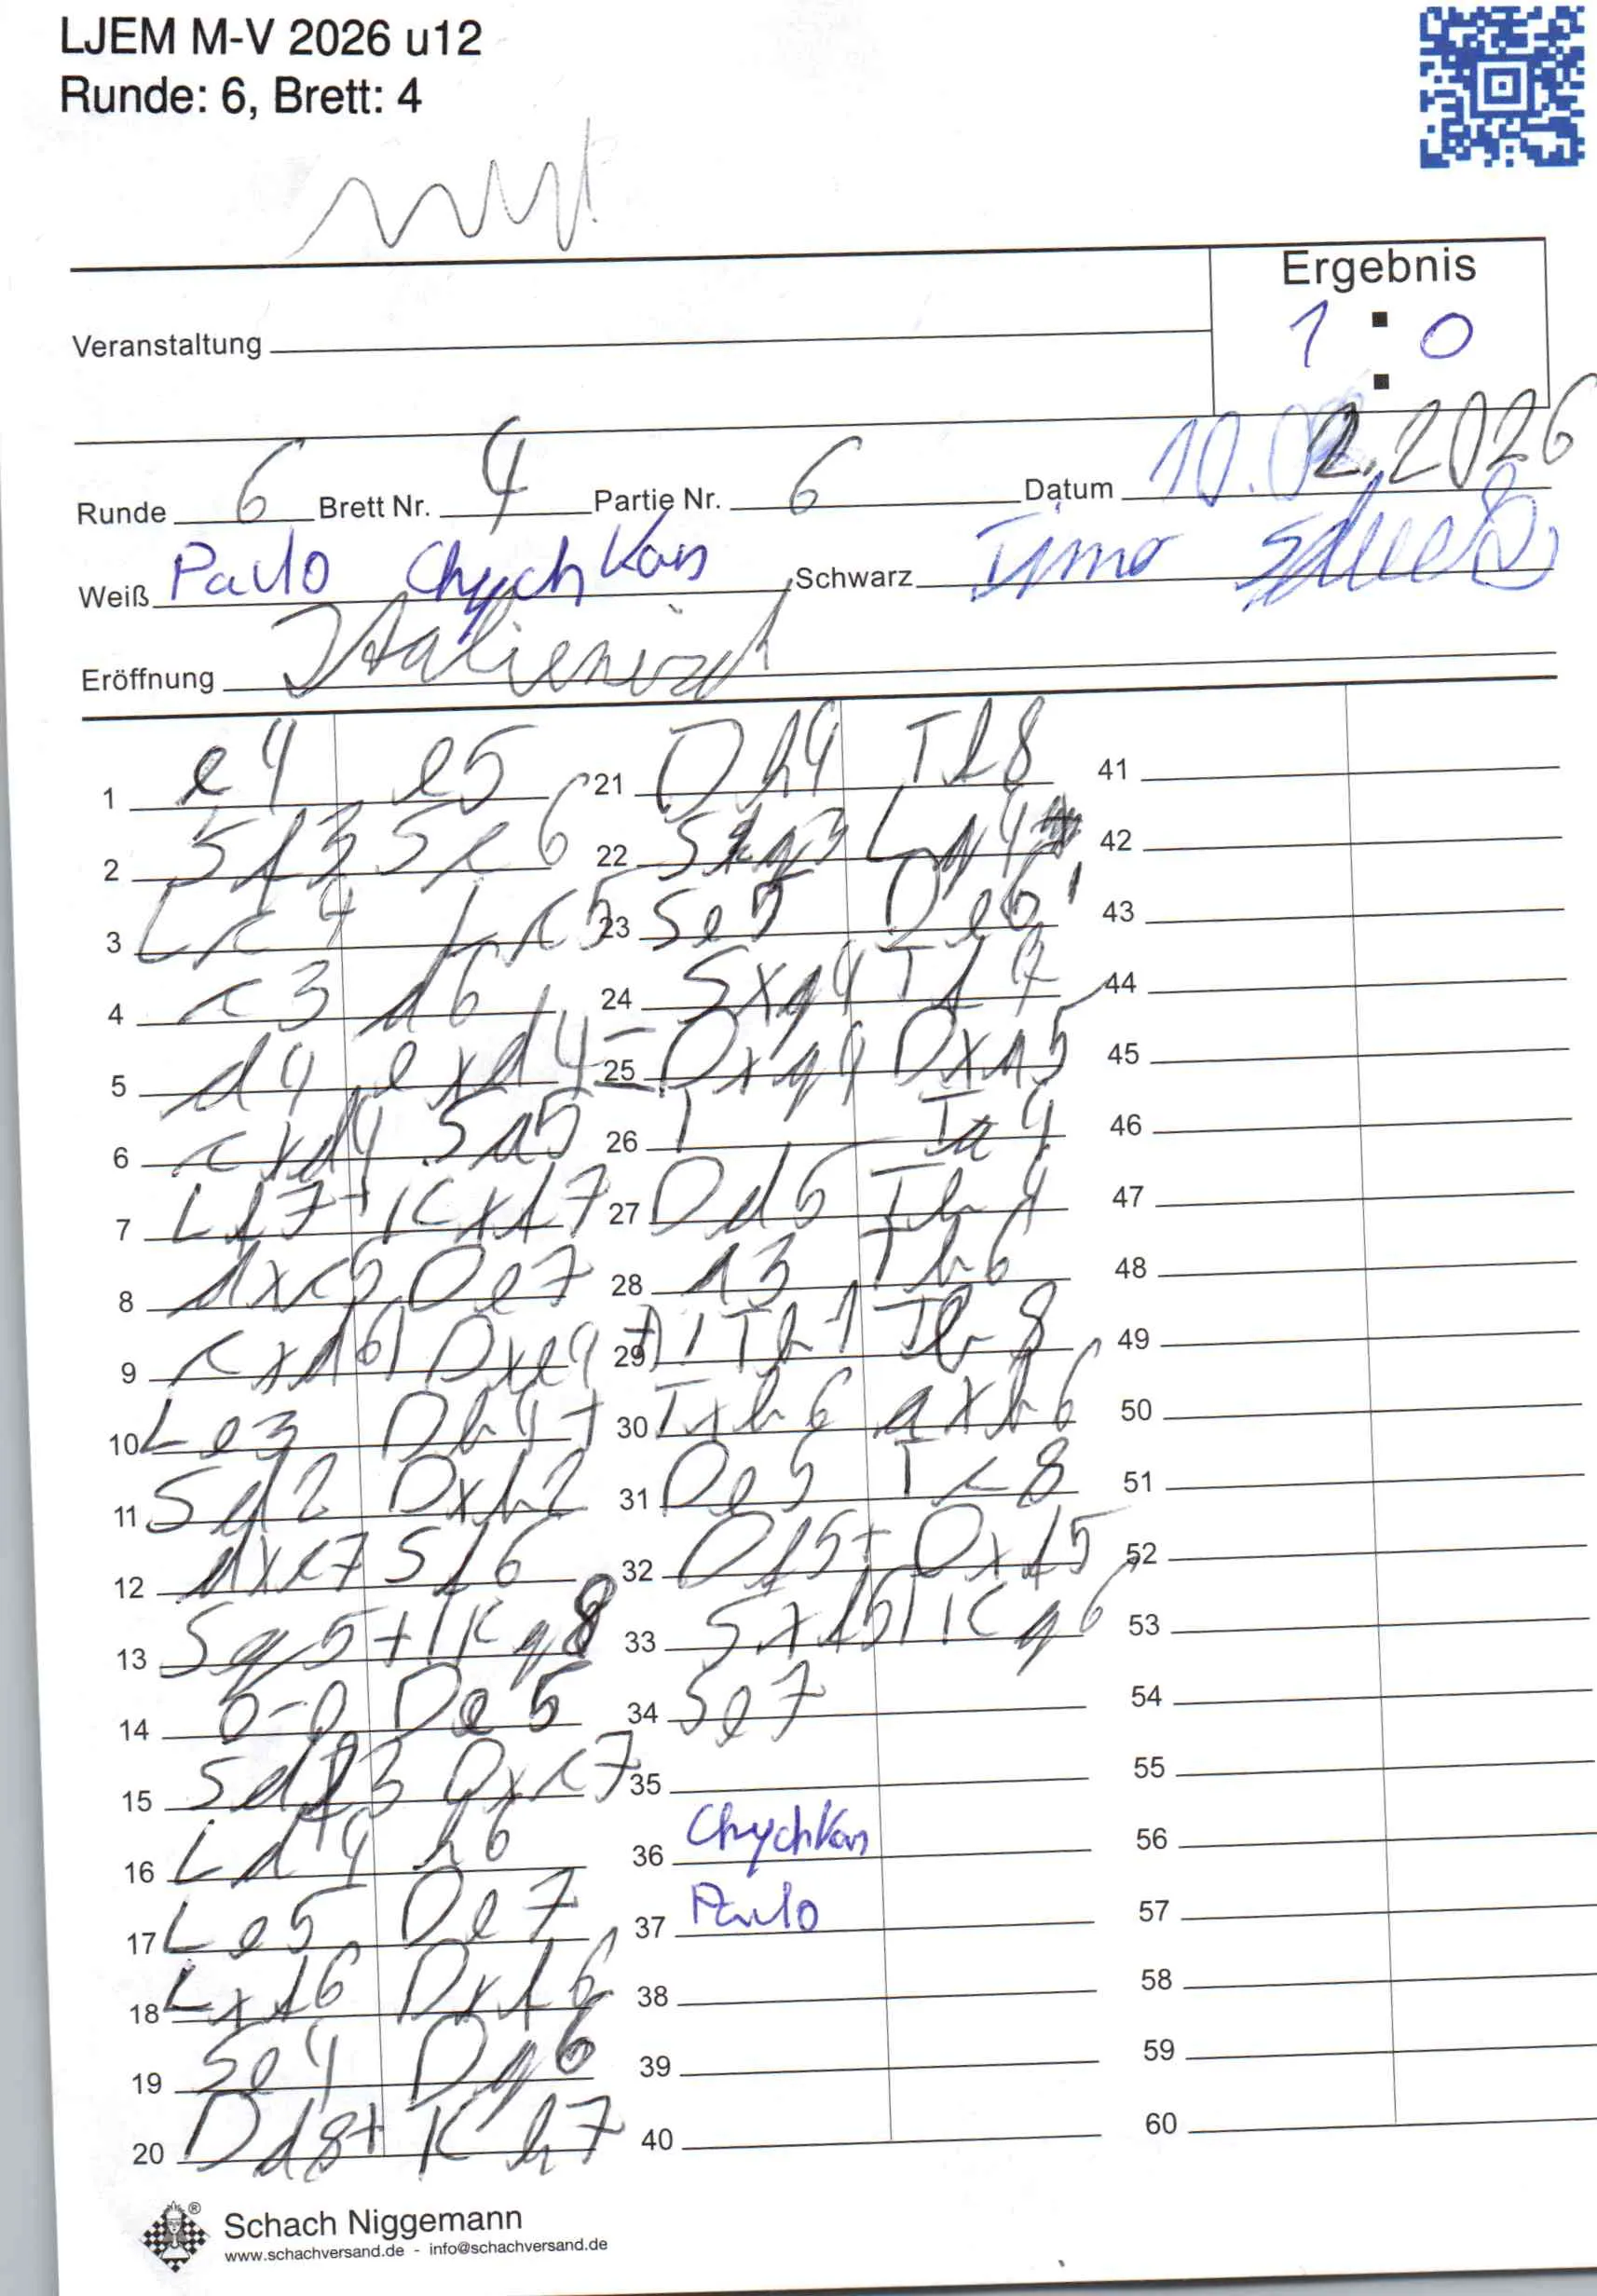 LJEM M-V 2026 u12
Runde: 6, Brett: 4
Ergebnis
1 : 0
Veranstaltung
Runde 6 Brett Nr. 4 Partie Nr. 6 Datum 10.02.2026
Weiß Pavlo Chychkan Schwarz Timo
Eröffnung Italienisch
1 e4 e5
2 Sf3 Sc6
3 Lc4 Lc5
4 c3 d6
5 d4 exd4
6 cxd4 Sa5
7 Lf7+ Kxf7
8 dxc5 De7
9 cxd6 Dxe4+
10 Le3 Dh4+
11 Sd2 Dxh2
12 dxc7 Sf6
13 Sg5+ Kg8
14 0-0 De5
15 Sdf3 Dxc7
16 Ld4 h6
17 Le5 De7
18 Lxf6 Dxf6
19 Se4 Dg6
20 Dd8+ Kh7
21 Dh4 Tf8
22 Sg3 Lg4
23 Se5 De6
24 Sxg4 Tf4
25 Dxg4 Dxa5
26 T Ta4
27 Dd5 Tb4
28 a3 Tb6
29 Tb1 Tb8
30 Txb6 axb6
31 De5 Tc8
32 Df5+ Dxf5
33 Sxf5 Kg6
34 Se7
35
36 Chychkan
37 Pavlo
38
39
40
41
42
43
44
45
46
47
48
49
50
51
52
53
54
55
56
57
58
59
60
Schach Niggemann
www.schachversand.de - info@schachversand.de